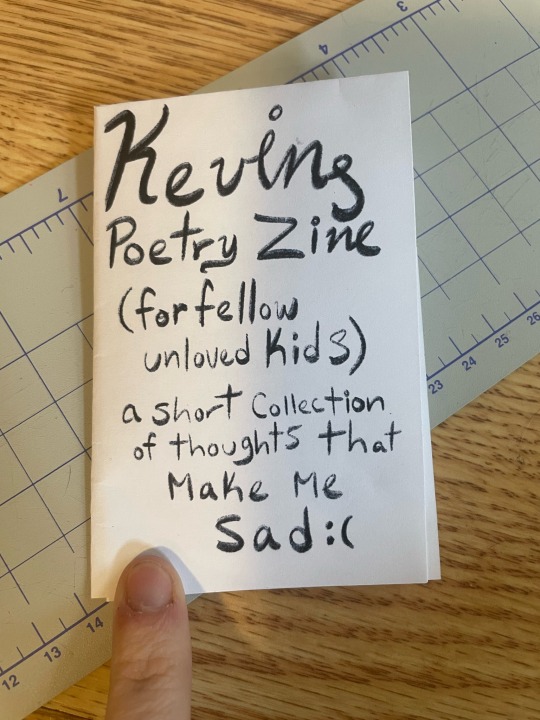 Kevins
Poetry Zine
(for fellow
unloved kids)
a short Collection
of thoughts that
Make Me
Sad :(
3
4
7
23
24
25
26
14
13
12